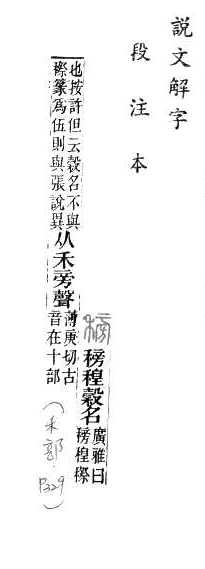 說文解字
段注本
䅭
䅭程穀名
廣雅曰
䅭程穄
也按許但云穀名不與
穄篆為伍則與張說異
从禾旁聲
薄庚切古
音在十部
(禾部. P329)